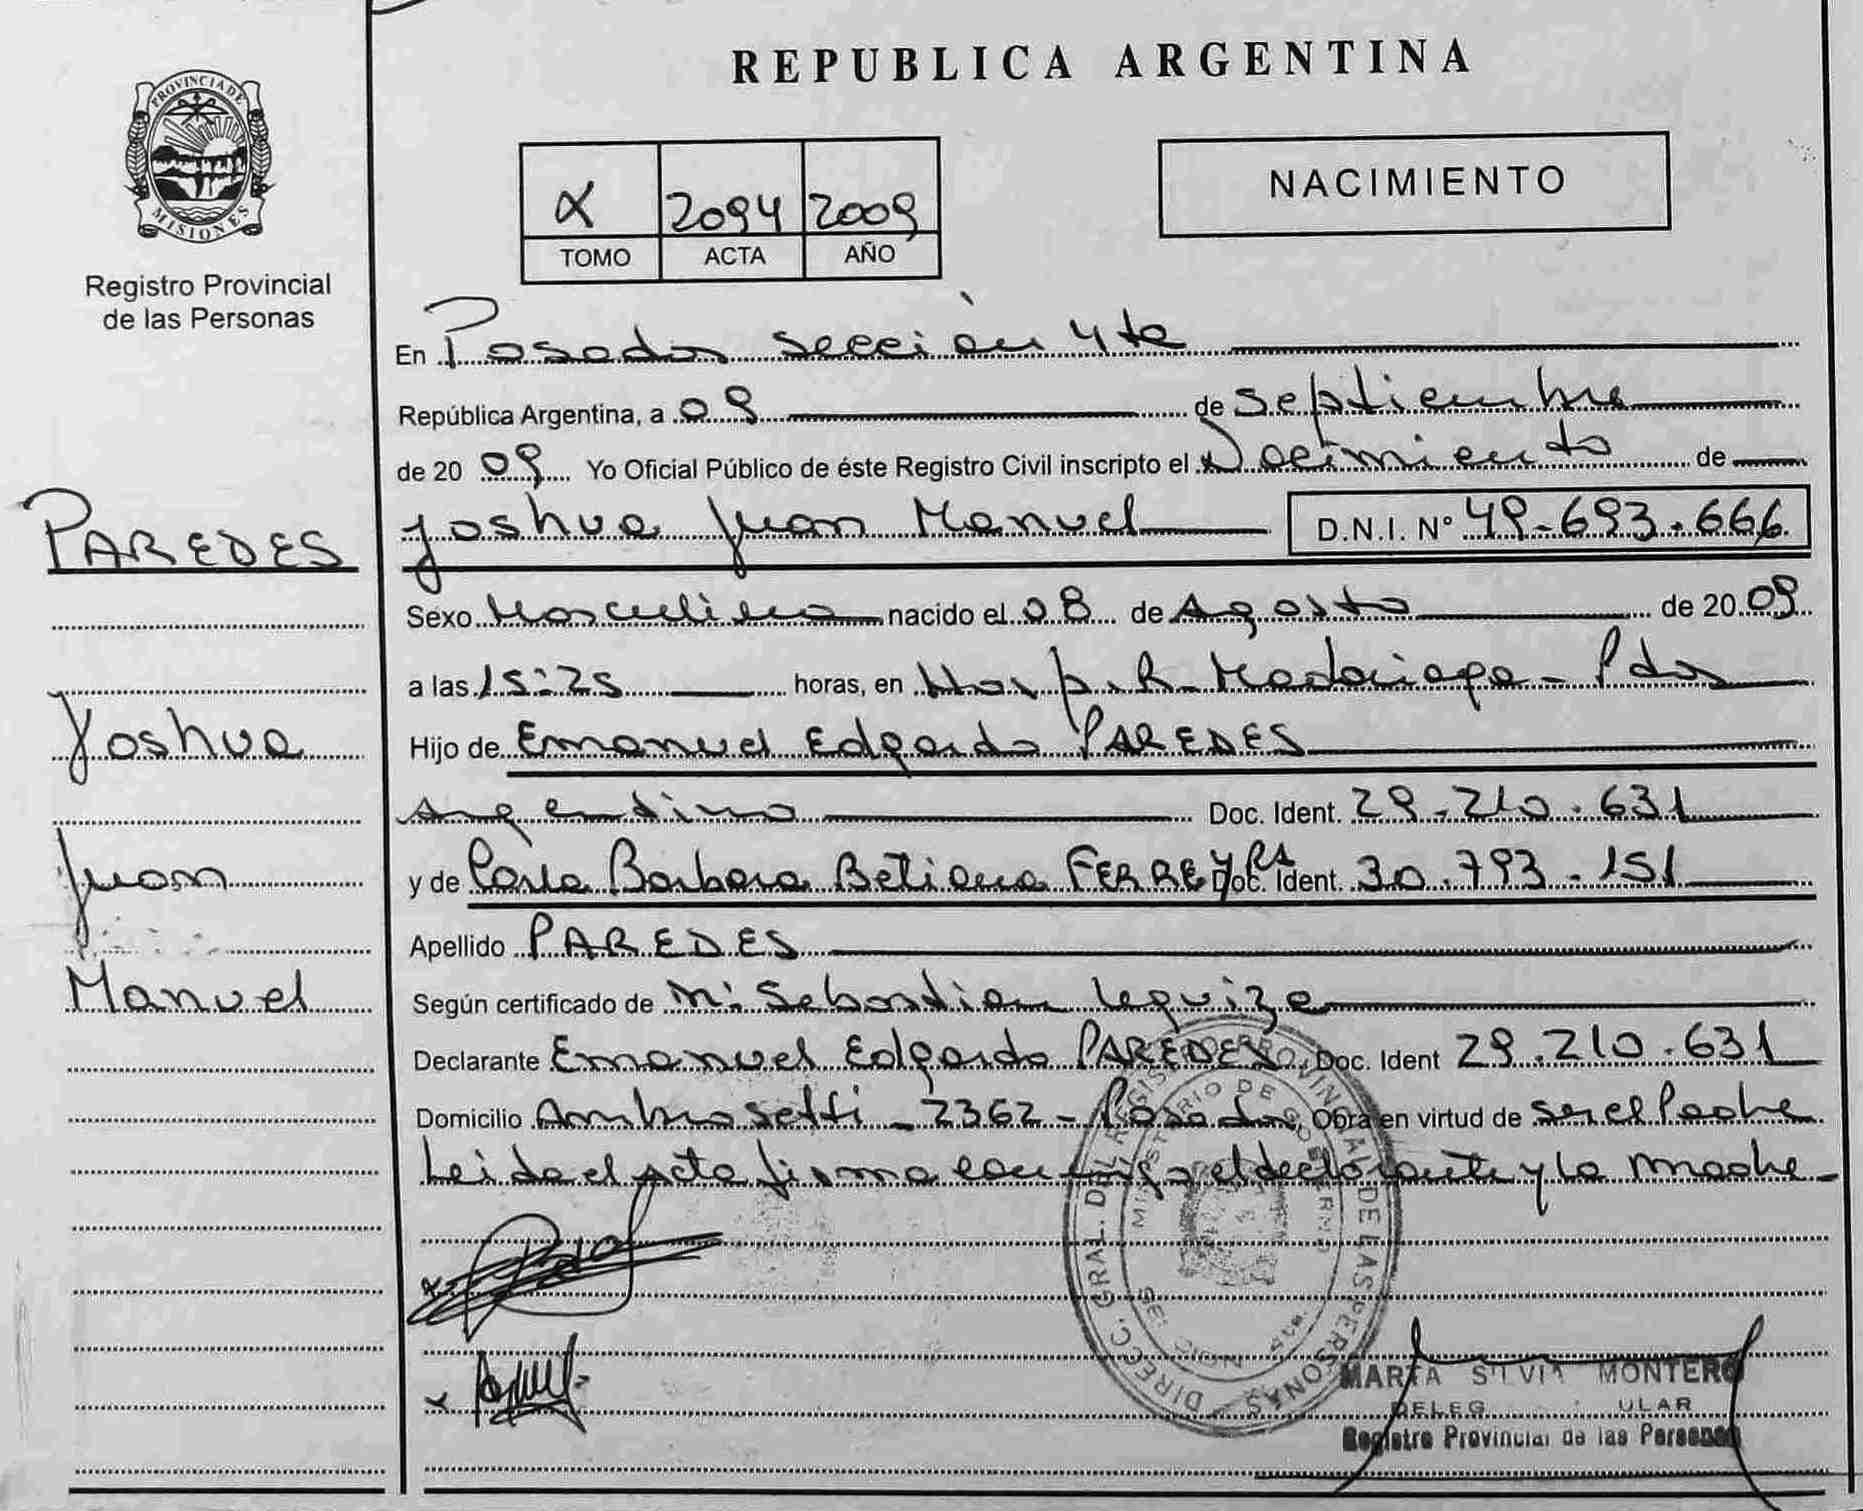 REPUBLICA ARGENTINA
PROVINCIA DE MISIONES
Registro Provincial
de las Personas
α 2094 2009
TOMO ACTA AÑO
NACIMIENTO
En Posadas sección 4ta
República Argentina, a 09 de Septiembre
de 20 09 Yo Oficial Público de éste Registro Civil inscripto el Nacimiento de
PAREDES
Yoshua Juan Manuel D.N.I. Nº 49-693-666
Sexo Masculino nacido el 08 de Agosto de 20 09
a las 15:25 horas, en Hosp. R. Madariaga - Pdas
Yoshua
Hijo de Emanuel Edgardo PAREDES
Argentino Doc. Ident. 29.210.631
Juan
y de Carla Barbara Betiana FERREYRA Doc. Ident. 30.793.151
Apellido PAREDES
Manuel
Según certificado de M: Sebastian Leguiza
Declarante Emanuel Edgardo PAREDES Doc. Ident 29.210.631
Domicilio Ambrosetti - 2362 - Posadas, Obra en virtud de ser el Padre
Leída el Acta firma conmigo el declarante y la madre
DIRECC. GRAL. DEL REGISTRO PROVINCIAL DE LAS PERSONAS
MINISTERIO DE GOBIERNO
MARTA SILVIA MONTERO
Registro Provincial de las Personas